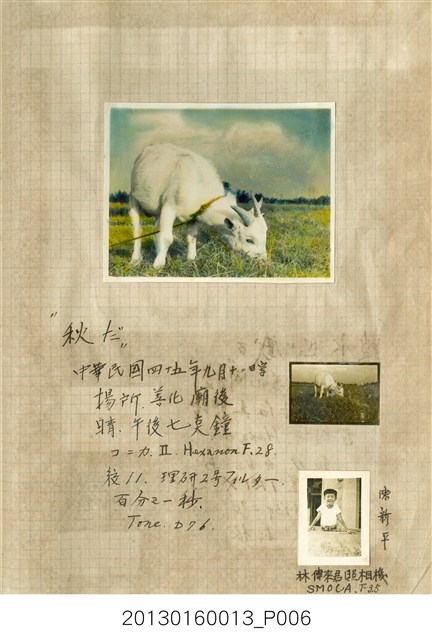 "秋だ"
中華民國四五年九月十一日 
揚所. 善化廟後
晴. 午後七点鐘
コニカ. II. Hexanon F. 28.
絞 11. 理研2号フィルター.
百分之一秒.
Tone. D76.
陳新平
林偉來君照相機
SMOCA. F3.5
20130160013_P006